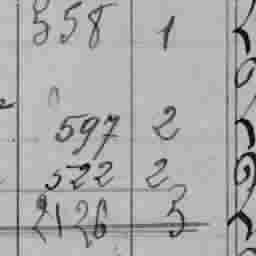 558 1
597 2
522 2
2126 5